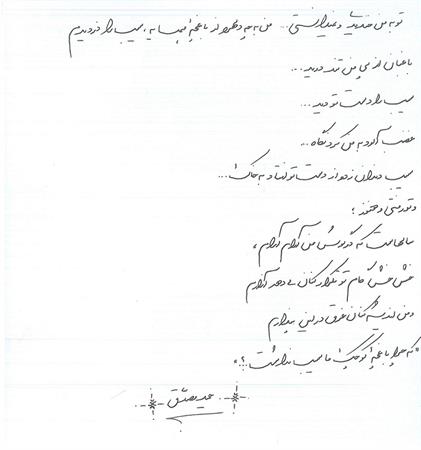 تو به من خندیدی و نمی‌دانستی... من به چه دلهره از باغچهٔ همسایه، سیب را دزدیدم
باغبان از پی من تند دوید...
سیب را دست تو دید...
غضب آلود به من کرد نگاه...
سیب دندان زده از دست تو افتاد به خاک...
و تو رفتی و هنوز؛
سالهاست که در گوش من آرام آرام،
خش خش گام تو تکرار کنان می دهد آزارم
و من اندیشه کنان غرق در این پندارم
"که چرا باغچهٔ کوچک ما سیب نداشت...؟"
حمید مصدق